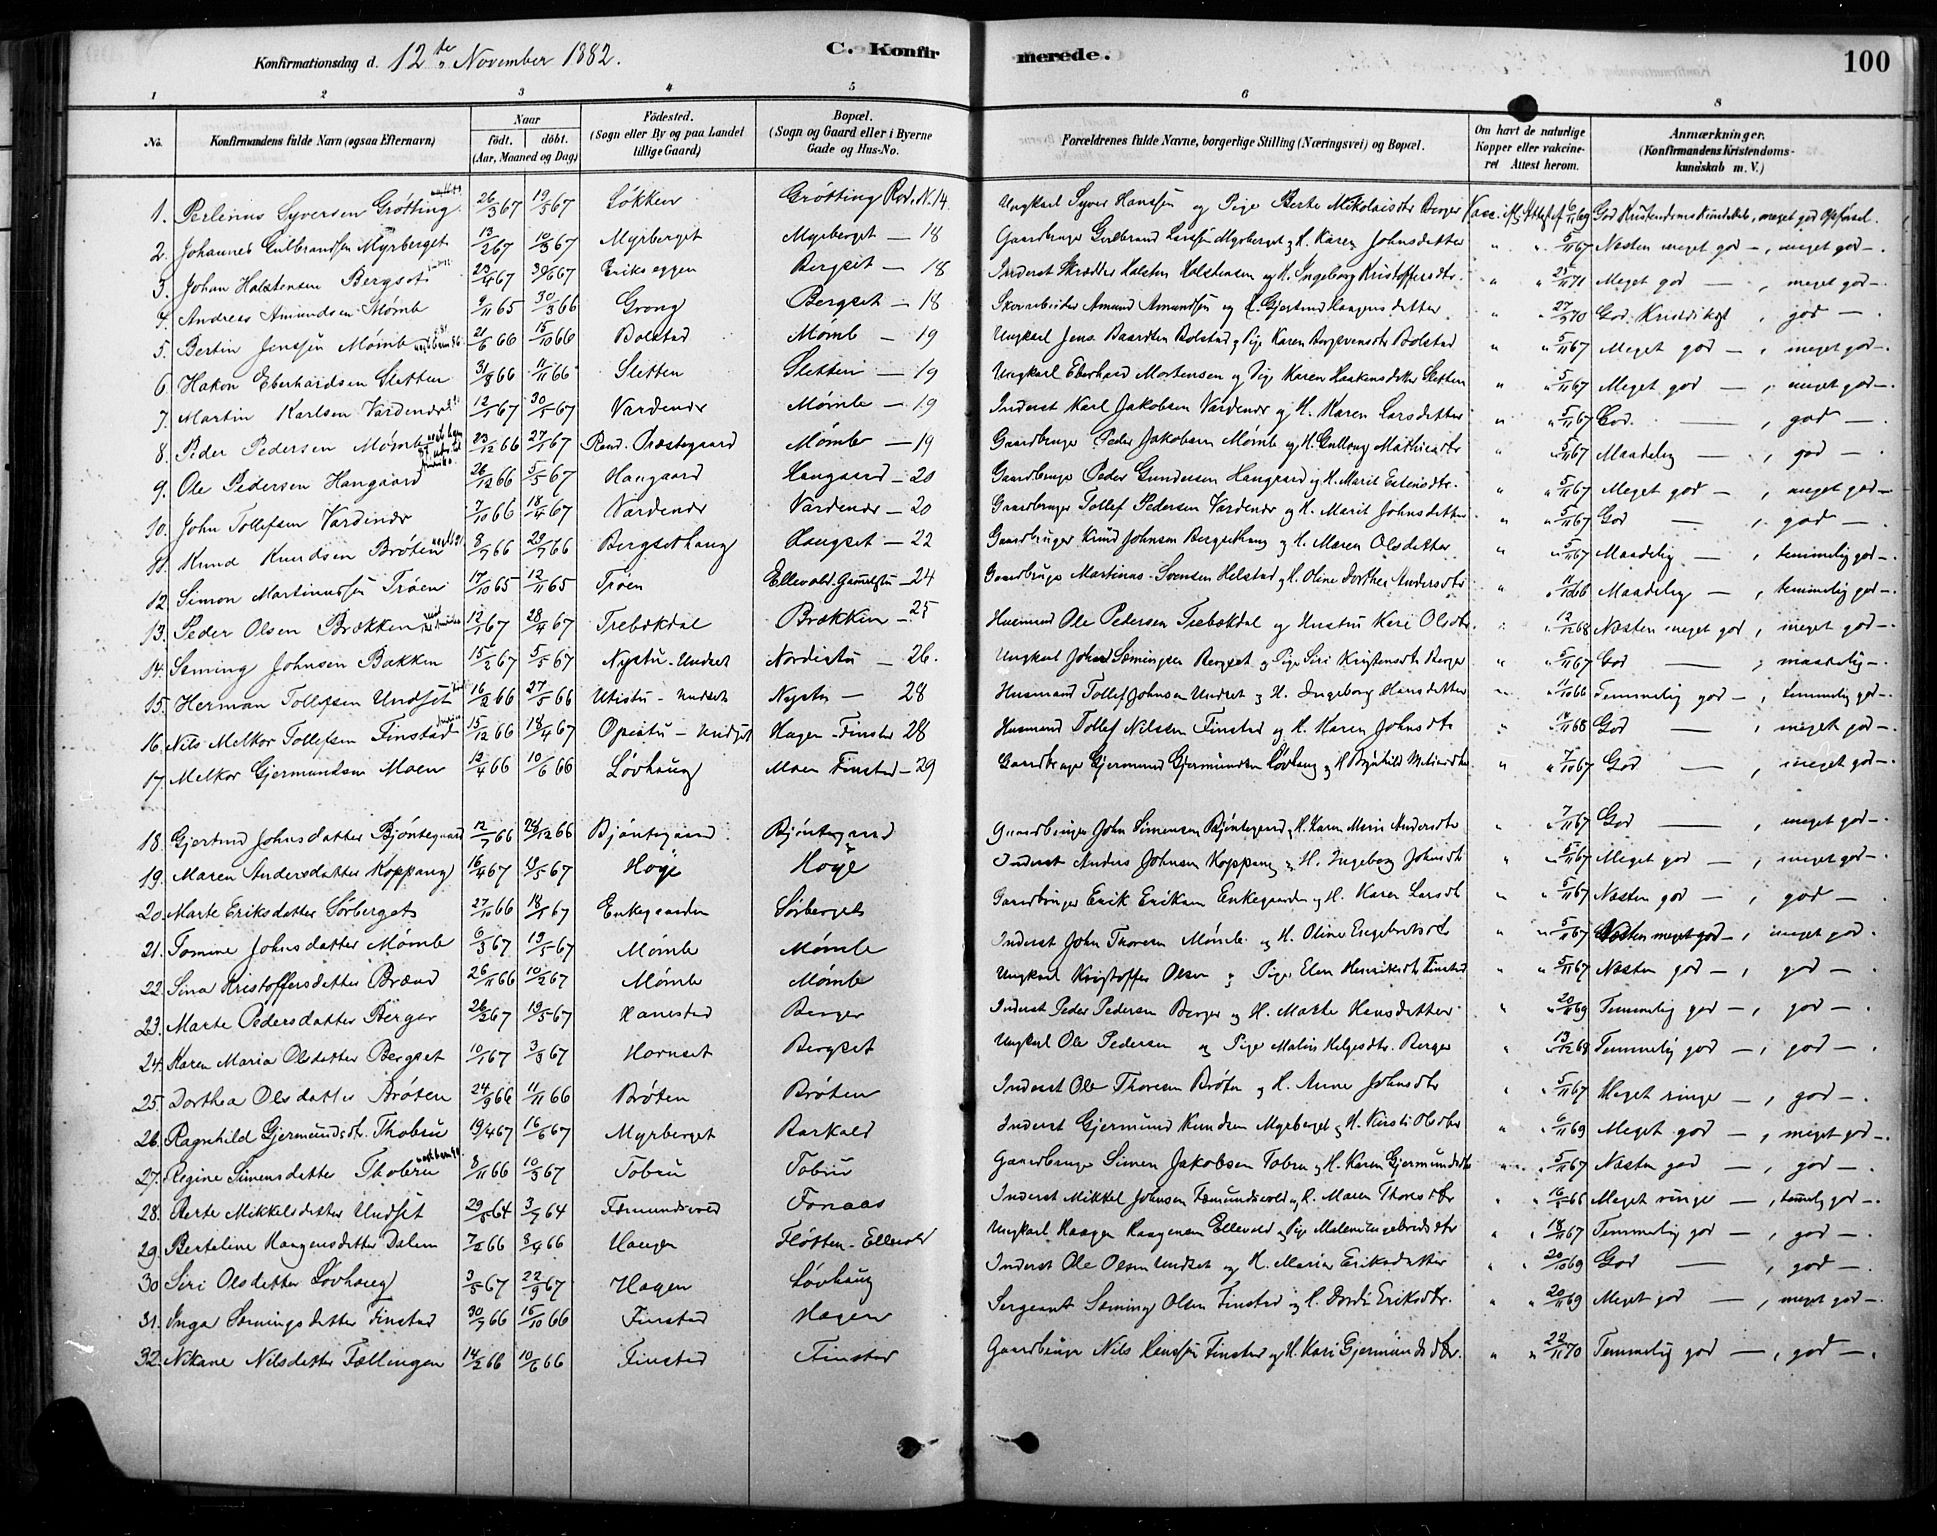 Konfirmationsdag d. 12te November 1882.
C. Konfir
merede.
100
1 2 3 4 5 6 8
No.
Konfirmandens fulde Navn (ogsaa Efternavn)
Naar
født. døbt.
(Aar, Maaned og Dag)
Fødested.
(Sogn eller By og paa Landet
tillige Gaard)
Bopæl.
(Sogn og Gaard eller i Byerne
Gade og Hus-No.
Forældrenes fulde Navne, borgerlige Stilling (Næringsvei) og Bopæl.
Om havt de naturlige
Kopper eller vakcine-
ret Attest herom.
Anmærkninger.
(Konfirmandens Kristendoms-
kundskab m. V.)
1. Perlinus Syversen Grøtting 26/3 67 19/5 67 Løkken Grøtting Rod. N. 14. Ungkarl Syver Hanssen og Pige Berte Mikolaisdtr Berger Vacc. 6/11 69 God Kristendoms Kundskab, meget god Opførsel.
2. Johannes Gulbrandsen Myrberget 13/2 67 10/3 67 Myrberget Myrberget — 18 Gaardbruger Gulbrand Larssen Myrberget og H. Karen Johnsdatter " " 5/11 67 Næsten meget god —, meget god —.
3. Johan Halstensen Bergset 23/4 67 30/6 67 Erikseggen Bergset — 18 Inderst Skrædder Halsten Halstensen og H. Ingeborg Kristoffersdtr. " " 25/11 71 Meget god —, meget god —.
4. Andreas Amundsen Mømb 9/11 65 30/3 66 Grong Bergset — 18 Skovarbeider Amund Amundsen og H. Gjertrud Haagensdatter " " 27/9 70 God Kristdskst, god —
5. Bertin Jenssen Mømb 21/6 66 15/10 66 Bolstad Mømb — 19 Ungkarl Jens Baardsen Bolstad og Pige Karen Bolstad " " 5/11 67 Meget god —, meget god —.
6. Hakon Eberhardsen Sletten 31/8 66 11/11 66 Sletten Sletten — 19 Ungkarl Eberhard Mortensen og Pige Karen Haakensdatter Sletten " " 5/11 67 Meget god —, meget god —.
7. Martin Karlsen Vardenær 12/1 67 30/5 67 Vardenær Mømb — 19 Inderst Karl Jakobsen Vardenær og H. Karen Larsdatter " " 5/11 67 God —, god —.
8. Peder Pedersen Mømb 23/12 66 27/1 67 Rend. Præstegaard Mømb — 19 Gaardbruger Peder Jakobsen Mømb og H. Gullaug Mathiasdtr " " 5/11 67 Maadelig —, god —.
9. Ole Pedersen Haugaard 26/12 66 5/5 67 Haugaard Haugaard — 20 Gaardbruger Peder Gundersen Haugaard og H. Marit Estensdtr. " " 5/11 67 Meget god —, meget god —
10. John Tollefsen Vardenær 7/10 66 18/4 67 Vardenær Vardenær — 20 Gaardbruger Tollef Pedersen Vardenær og H. Marit Johnsdatter " " 5/11 67 God —, god —.
11. Knud Knudsen Brøten 8/7 66 29/7 66 Bergsethaug Haugset — 22 Gaardbruger Knud Johnsen Bergsethaug og H. Maren Olsdatter " " 5/11 67 Maadelig —, temmelig god —.
12. Simon Martinussen Trøen 17/10 65 12/11 65 Trøen Ellevold — 24 Gaardbruger Martinus Svensen Helstad og H. Oline Dorthea Andersdtr " " 11/10 66 Maadelig —, temmelig god —.
13. Peder Olsen Brækken 12/1 67 28/4 67 Trebækdal Brækken — 25 Husmand Ole Pedersen Trebækdal og Hustru Kari Olsdtr. " " 12/12 68 Næsten meget god, meget god —.
14. Seming Johnsen Bakken 15/2 67 5/5 67 Nystu - Undset Nordistu — 26. Ungkarl John Sæmingsen Bergset og Pige Siri Kristensdtr Berger " " 5/11 67 God —, maadelig —.
15. Herman Tollefsen Undset 16/2 66 27/5 66 Utistu - Undset Nystu — 28 Husmand Tollef Johnsen Undset og H. Ingeborg Hansdatter " " 11/10 66 Temmelig god —, temmelig god —.
16. Nils Melkor Tollefsen Finstad 15/12 66 18/4 67 Opistu - Undset Hagen - Finstad 28 Husmand Tollef Nilsen Finstad og H. Karen Johnsdtr " " 11/11 68 God —, meget god —.
17. Melkor Gjermundsen Moen 12/4 66 10/6 66 Løvhaug Moen Finstad — 29 Gaardbruger Gjermund Gjermundsen Løvhaug og H. " " 7/10 67 God —, meget god —.
18. Gjertrud Johnsdatter Bjøntegaard 12/7 66 26/12 66 Bjøntegaard Bjøntegaard Gaardbruger John Simensen Bjøntegaard og H. Karen Maria Andersdtr " " 7/11 67 God —, meget god —.
19. Maren Andersdatter Koppang 16/4 67 19/5 67 Høge Høge Inderst Anders Johnsen Koppang og H. Ingeborg Johnsdtr " " 5/11 67 Meget god —, meget god —
20. Marte Eriksdatter Sørberget 27/10 66 18/1 67 Enkegaarden Sørberget Gaardbruger Erik Eriksen Enkegaarden og H. Karen Larsdtr " " 5/11 67 Næsten god —, god —
21. Tomine Johnsdatter Mømb 6/3 67 19/5 67 Mømb Mømb Inderst John Thoresen Mømb og H. Oline Engebretsdtr " " 5/11 67 Næsten meget god —, meget god.
22. Sina Kristoffersdatter Brænd 26/11 66 10/2 67 Mømb Mømb Ungkarl Kristoffer Olsen og Pige Elen Henriksdtr Finstad " " 5/11 67 Næsten god —, god —.
23. Marte Pedersdatter Berger 26/2 67 19/5 67 Hanestad Berger Inderst Peder Pedersen Berger og H. Marte Hansdatter " " 20/11 69 Temmelig god —, god —.
24. Karen Maria Olsdatter Bergset 10/1 67 3/3 67 Hornset Bergset Ungkarl Ole Pedersen og Pige Malin Helgesdtr. Berger " " 13/12 68 Temmelig god —, god —.
25. Dorthea Olsdatter Brøten 24/9 66 11/11 66 Brøten Brøten Inderst Ole Thoresen Brøten og H. Anne Johnsdtr " " 5/11 67 Meget ringe —, god —.
26. Ragnhild Gjermundsdtr. Thobru 19/4 67 16/6 67 Myrberget Barkald Inderst Gjermund Knudsen Myrberget og H. Kirsti Olsdtr " " 6/11 69 Meget god —, meget god —.
27. Regine Simensdatter Thobru 8/11 66 10/3 67 Tobru Tobru Gaardbruger Simen Jakobsen Tobru og H. Karen Gjermundsdtr " " 5/11 67 Næsten god —, god —.
28. Berte Mikkelsdatter Undset 29/5 64 3/7 64 Fæmundsvold Fonaas Inderst Mikkel Johnsen Fæmundsvold og H. Maren Thoresdtr " " 16/5 65 Meget ringe —, temmelig god —.
29. Bertoline Haagensdatter Dalen 7/2 66 8/4 66 Haugen Fløtten - Ellevold Ungkarl Haagen Haagensen Ellevold og Pige Malene Engebretsdtr " " 18/11 67 Temmelig god —, god —.
30. Siri Olsdatter Løvhaug 3/5 67 22/9 67 Hagen Løvhaug Inderst Ole Olsen Undset og H. Maria Eriksdatter " " 20/10 69 God —, god —.
31. Inga Sæmingsdatter Finstad 30/7 66 15/10 66 Finstad Hagen Sergeant Sæming Olsen Finstad og H. Dordi Eriksdtr. " " 20/11 69 Meget god —, meget god —.
32. Nikane Nilsdatter Fællingen 14/2 66 10/6 66 Finstad Finstad Gaardbruger Nils Hanssen Finstad og H. Kari Gjermundsdtr. " " 22/11 70 Temmelig god —, god —.